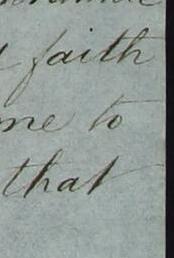 faith
me to
that